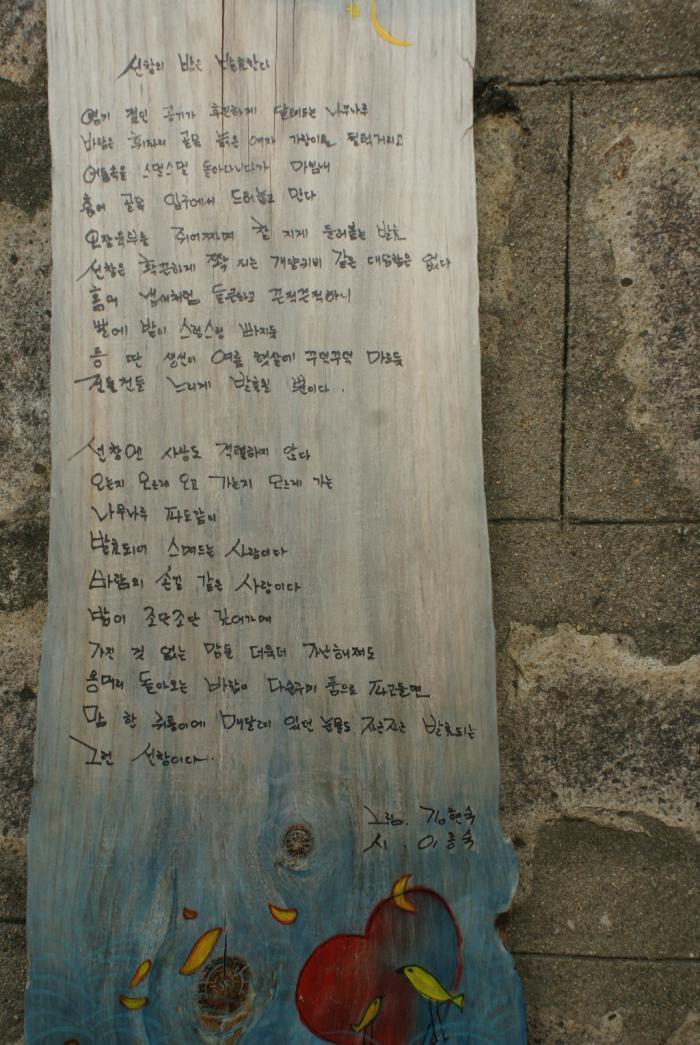 선창의 밤은 발효한다
염기 절인 공기가 후끈하게 달려드는 나무나루
바람은 휘파리 골목 늙은 여자 가랑이를 펄럭거리고
어둠속을 스멀스멀 돌아다니다가 마침내
홍어 골목 입구에서 드러눕고 만다
오장육부를 쥐어짜며 찰 지게 들러붙는 발효
선창은 화끈하게 짝 지는 개양귀비 같은 대담함은 없다
홍어 냄새처럼 들큰하고 끈적끈적하니
뻘에 발이 스렁스렁 빠지듯
등 딴 생선이 여름 햇살에 꾸덕꾸덕 마르듯
느리게 발효될 뿐이다.
선창엔 사랑도 격렬하지 않다
오는지 모르게 오고 가는지 모르게 가는
나무나루 파도같이
발효되어 스며드는 사람이다
바람의 손길 같은 사랑이다
밤이 조단조단 깊어가며
가진 것 없는 맘을 더욱더 가난해져도
용머리 돌아오는 바람이 다순구미 품으로 파고들면
맘 한 귀퉁이에 매달려 있던 눈물도 자근자근 발효되는
그런 선창이다.
그림. 김현숙
시. 이종숙